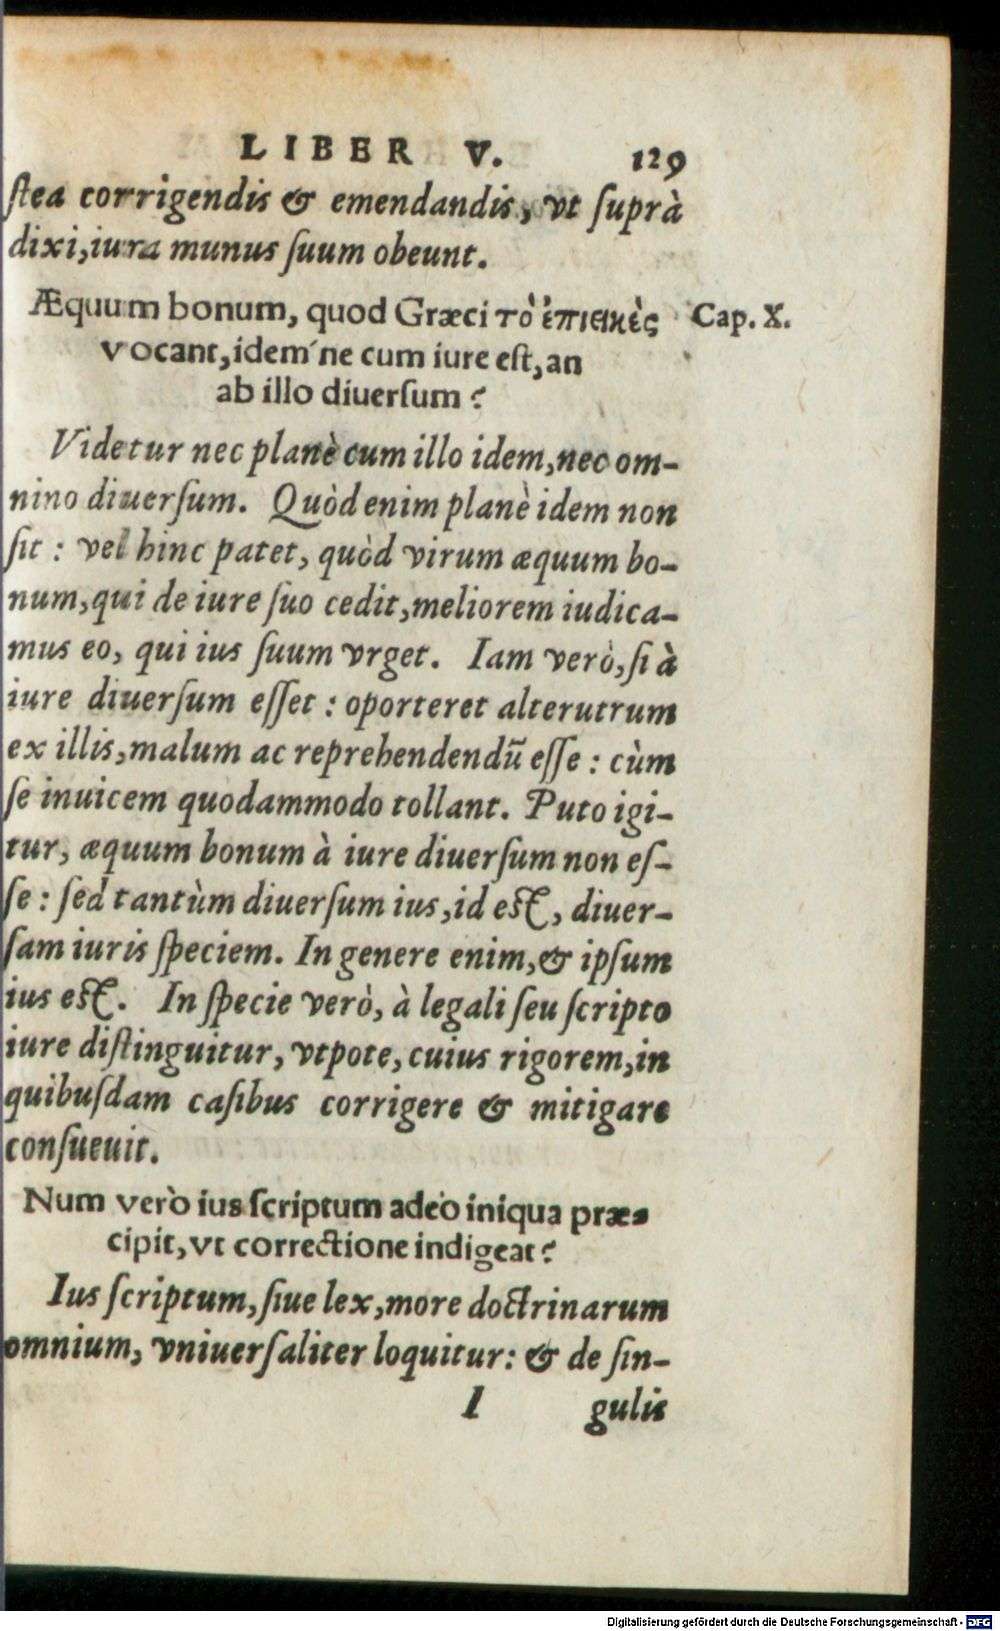 LIBER V. 129
ſtea corrigendis & emendandis, vt ſuprà
dixi, iura munus ſuum obeunt.
Æquum bonum, quod Græci τὸ ἐπιεικὲς Cap. X.
vocant, idem´ne cum iure eſt, an
ab illo diuerſum?
Videtur nec planè cum illo idem, nec om-
nino diuerſum. Quòd enim planè idem non
ſit: vel hinc patet, quòd virum æquum bo-
num, qui de iure ſuo cedit, meliorem iudica-
mus eo, qui ius ſuum vrget. Iam verò, ſi à
iure diuerſum eſſet: oporteret alterutrum
ex illis, malum ac reprehendendũ eſſe: cùm
ſe inuicem quodammodo tollant. Puto igi-
tur, æquum bonum à iure diuerſum non eſ-
ſe: ſed tantùm diuerſum ius, id eſt, diuer-
ſam iuris ſpeciem. In genere enim, & ipſum
ius eſt. In ſpecie verò, à legali ſeu ſcripto
iure diſtinguitur, vtpote, cuius rigorem, in
quibuſdam caſibus corrigere & mitigare
conſueuit.
Num verò ius ſcriptum adeò iniqua præ-
cipit, vt correctione indigeat?
Ius ſcriptum, ſiue lex, more doctrinarum
omnium, vniuerſaliter loquitur: & de ſin-
I gulis
Digitalisierung gefördert durch die Deutsche Forschungsgemeinschaft - DFG